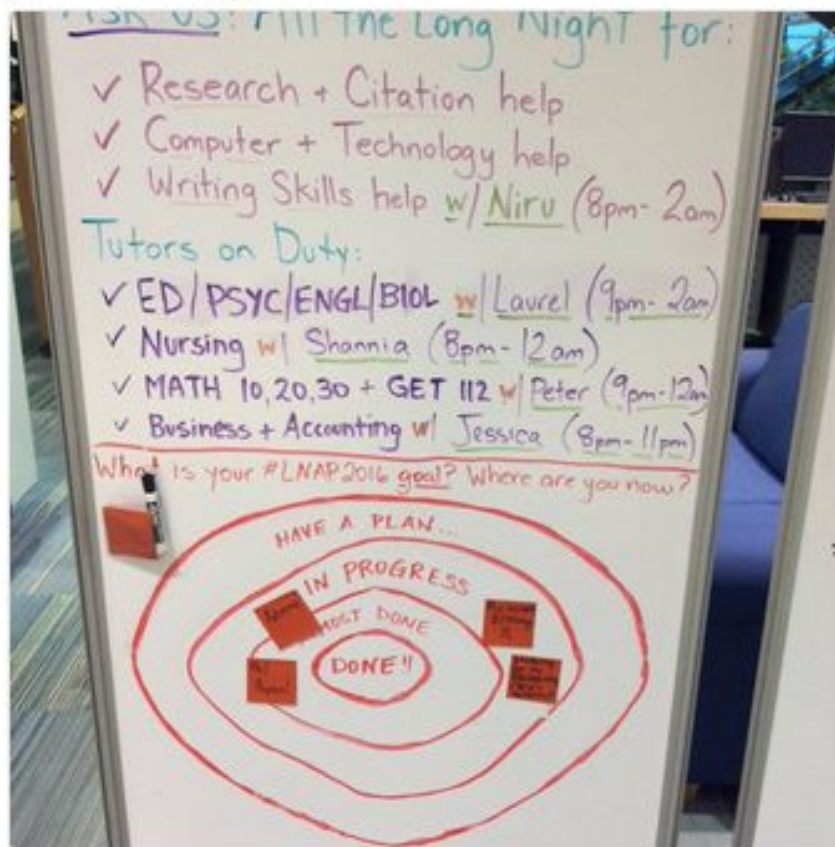 ASK US: All the Long Night for:
✓ Research + Citation help
✓ Computer + Technology help
✓ Writing Skills help w/ Niru (8pm-2am)
Tutors on Duty:
✓ ED/PSYC/ENGL/BIOL w/ Laurel (9pm-2am)
✓ Nursing w/ Shannia (8pm-12am)
✓ MATH 10,20,30 + GET 112 w/ Peter (9pm-12am)
✓ Business + Accounting w/ Jessica (8pm-11pm)
What is your #LNAP2016 goal? Where are you now?
HAVE A PLAN...
IN PROGRESS
MOST DONE
DONE!!